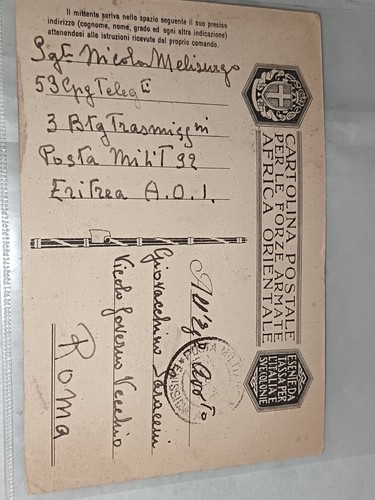 Il mittente scriva nello spazio seguente il suo preciso
indirizzo (cognome, nome, grado ed ogni altra indicazione)
attenendosi alle istruzioni ricevute dal proprio comando.
Sgt. Nicola Melisurgo
53 Cpg Telegti
3 Btg Trasmissni
Posta Milit 92
Eritrea A.O.I.
CARTOLINA POSTALE
PER LE FORZE ARMATE
AFRICA ORIENTALE
ESENTE DA
TASSA PER
L'ITALIA E
SVE COLONIE
All'Egrgio
Giovacchino Saraceni
Vicolo Governo Vecchio
Roma